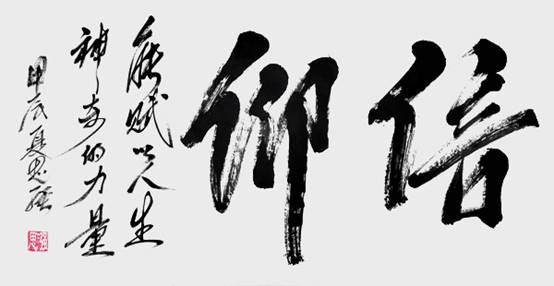 信仰
能赋以人生
神奇的力量
甲辰夏